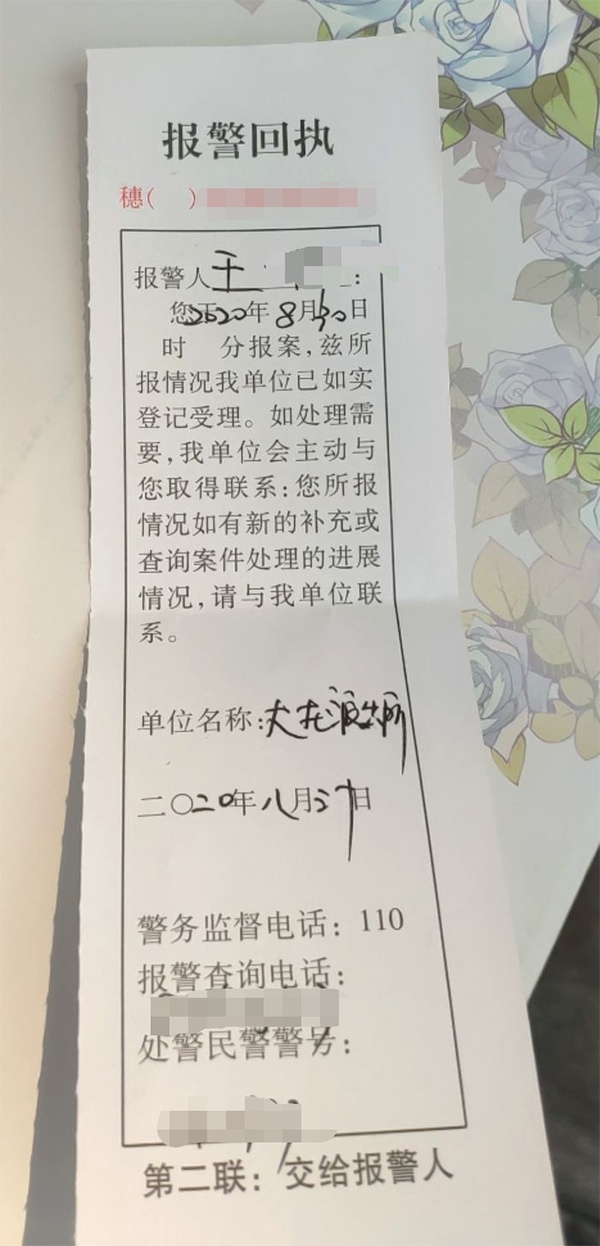 报警回执
穗( )
报警人王 :
您于2020年8月30日
时 分报案,兹所
报情况我单位已如实
登记受理。如处理需
要,我单位会主动与
您取得联系:您所报
情况如有新的补充或
查询案件处理的进展
情况,请与我单位联
系。
单位名称:大龙派出所
二〇20年八月 日
警务监督电话: 110
报警查询电话:
处警民警警号:
第二联: 交给报警人